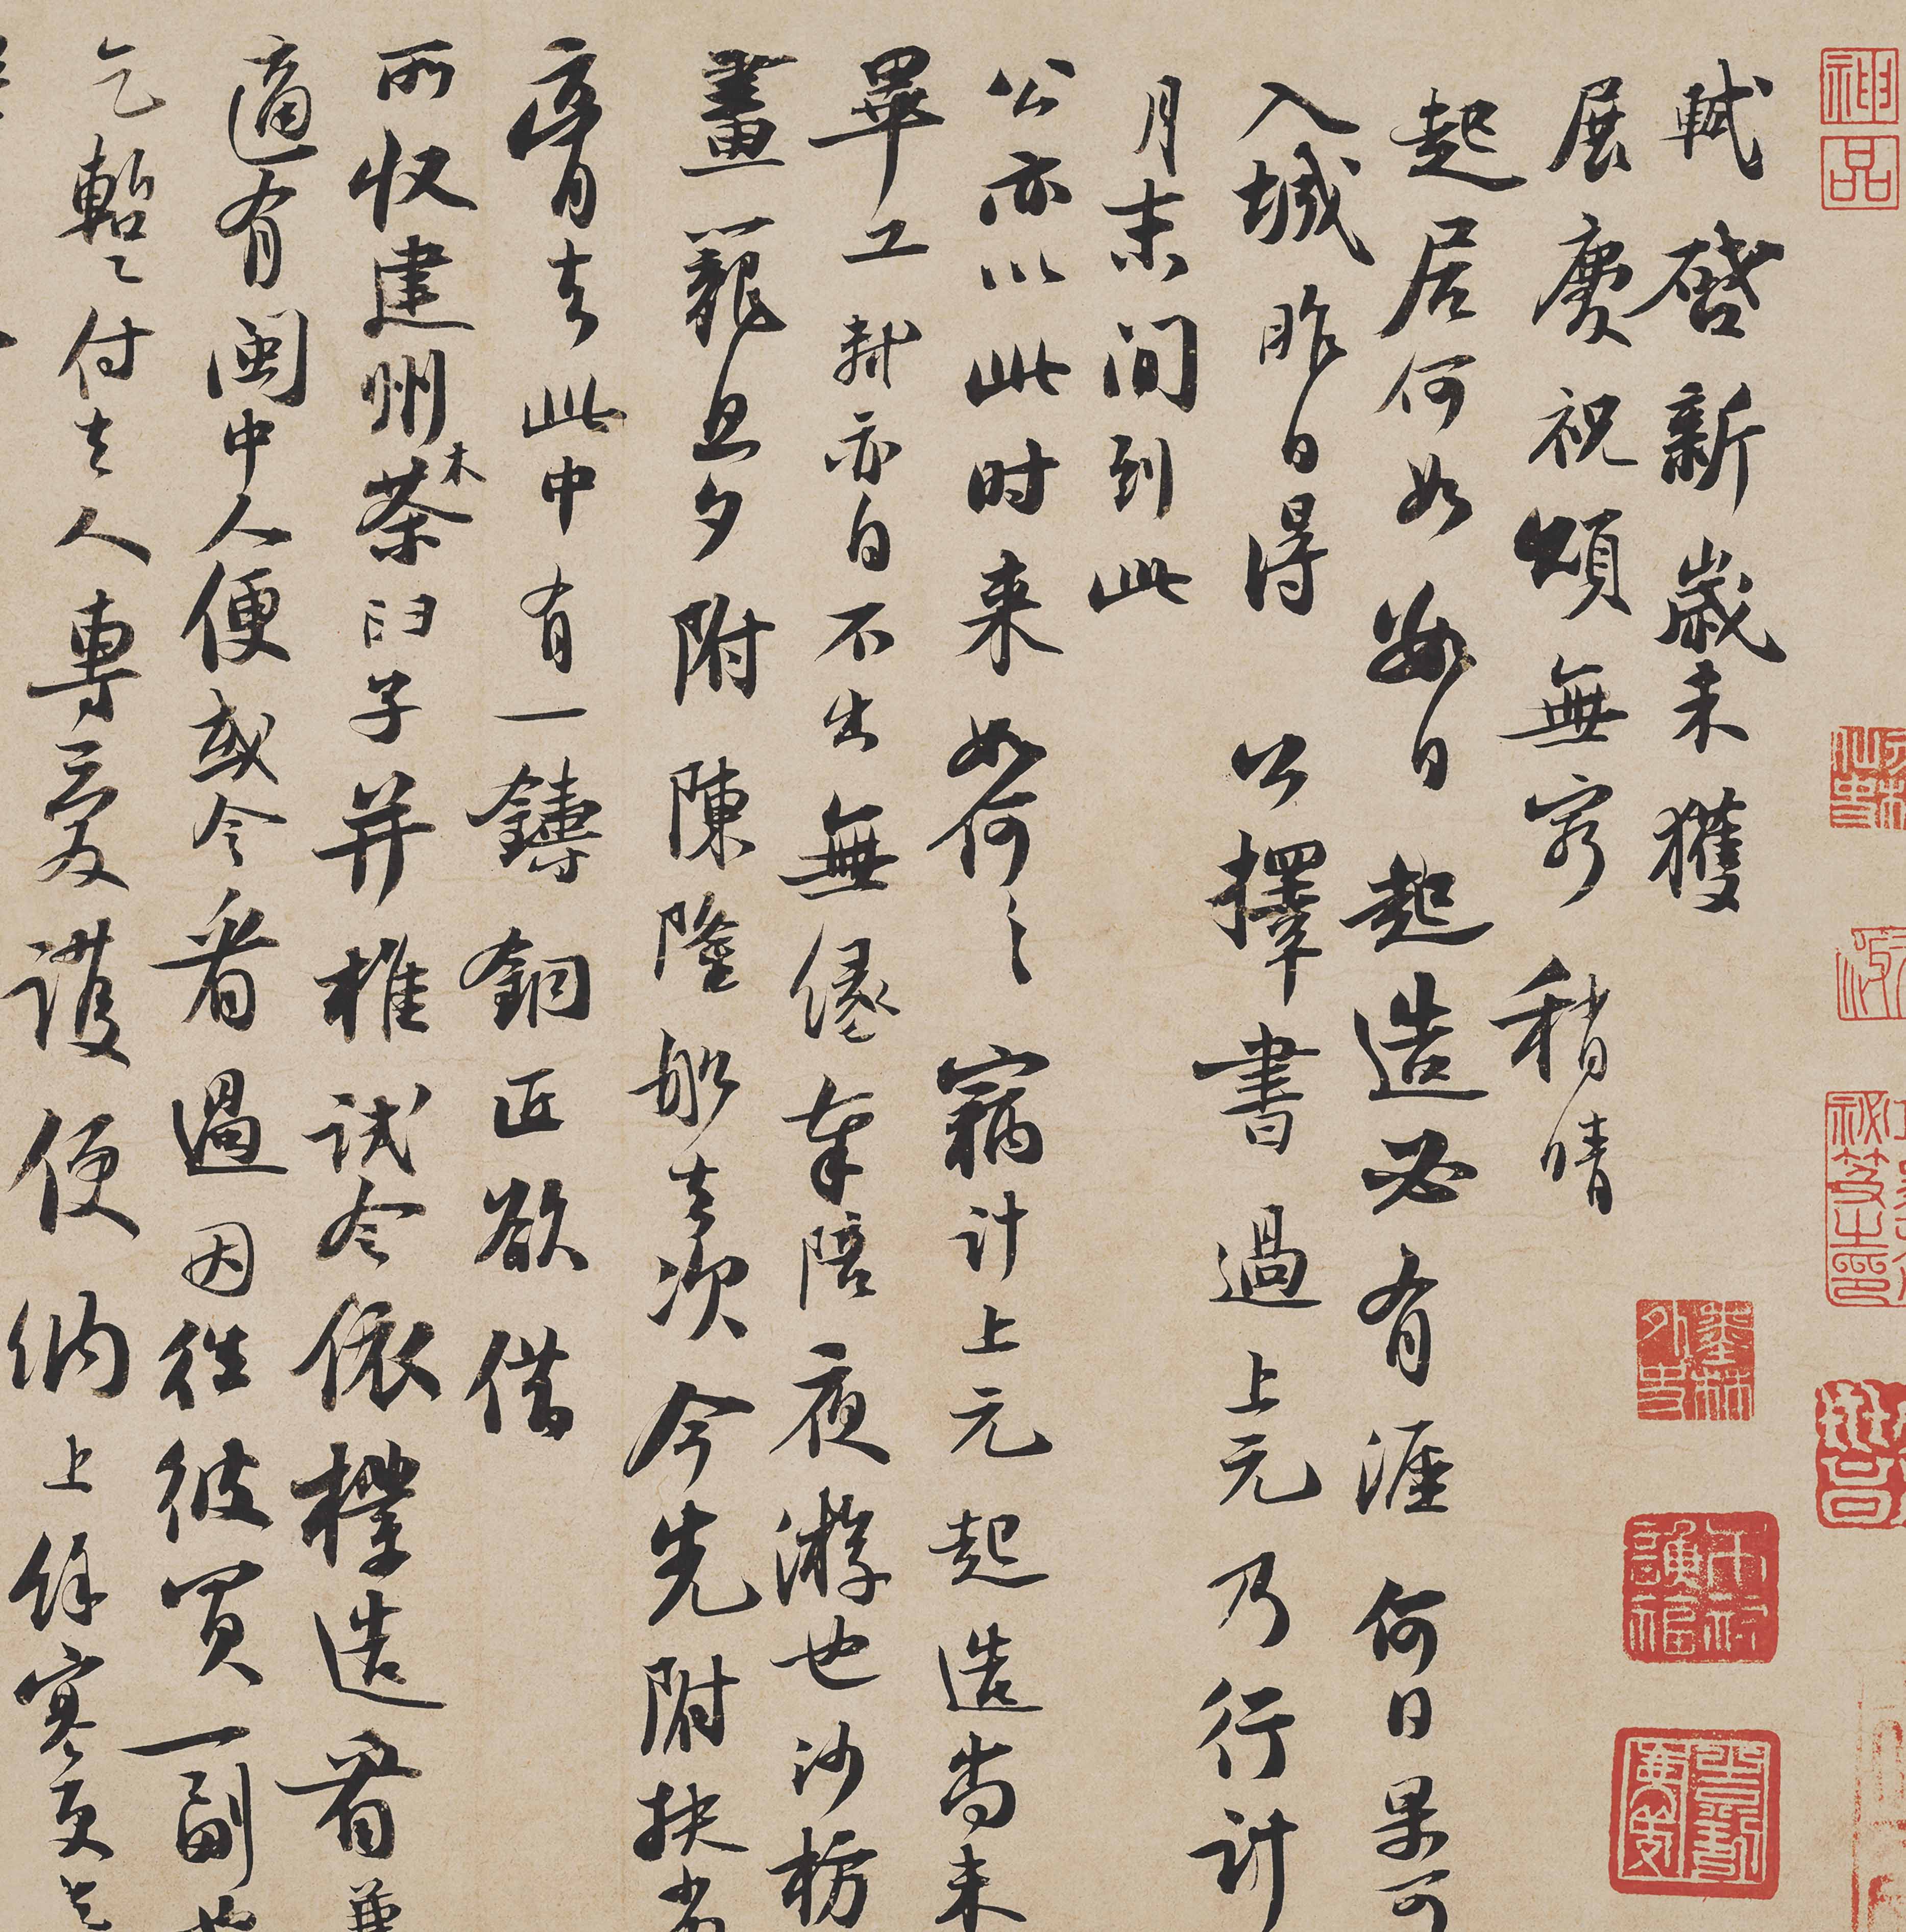 軾啓新歲未獲
展慶祝頌無窮稍晴
起居何如數日起造必有涯何日果可
入城昨日得公擇書過上元乃行計
月末間到此
公亦以此時来如何〻竊計上元起造尚未
畢工軾亦自不出無緣奉陪夜游也沙枋
畫籠旦夕附陳隆船去次今先附扶劣
膏去此中有一鑄銅匠欲借
所收建州木茶臼子并椎試令依樣造看兼
適有閩中人便或令看過因往彼買一副也
乞暫付去人專爱護便納上餘寒更乞
神品